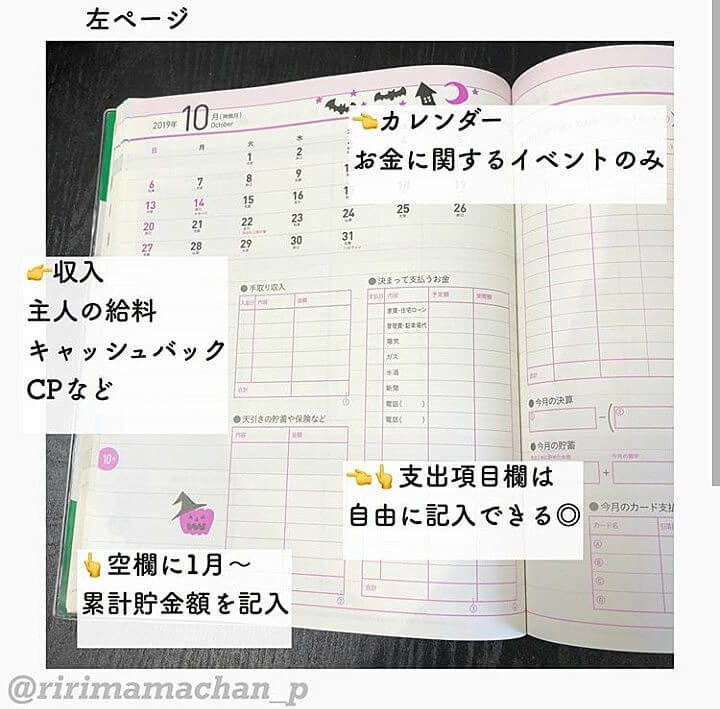 左ページ
2019年 10 月(神無月)
October
👈カレンダー
お金に関するイベントのみ
日 月 火 水
1 2
6 7 8 9
13 14 15 16
20 21 22 23 24 25 26
27 28 29 30 31
👉収入
主人の給料
キャッシュバック
CPなど
●手取り収入
入金日 内容 金額
合計
①
●決まって支払うお金
支払日 内容 予定額 実際額
家賃・住宅ローン
管理費・駐車場代
電気
ガス
水道
新聞
電話( )
電話( )
合計
●天引きの貯蓄や保険など
内容 金額
合計
②
10月
👈👆支出項目欄は
自由に記入できる◎
👆空欄に1月～
累計貯金額を記入
●今月の決算
①
②
●今月の貯蓄
今月の黒字
●今月のカード支払
カード名
A
B
@ririmamachan_p